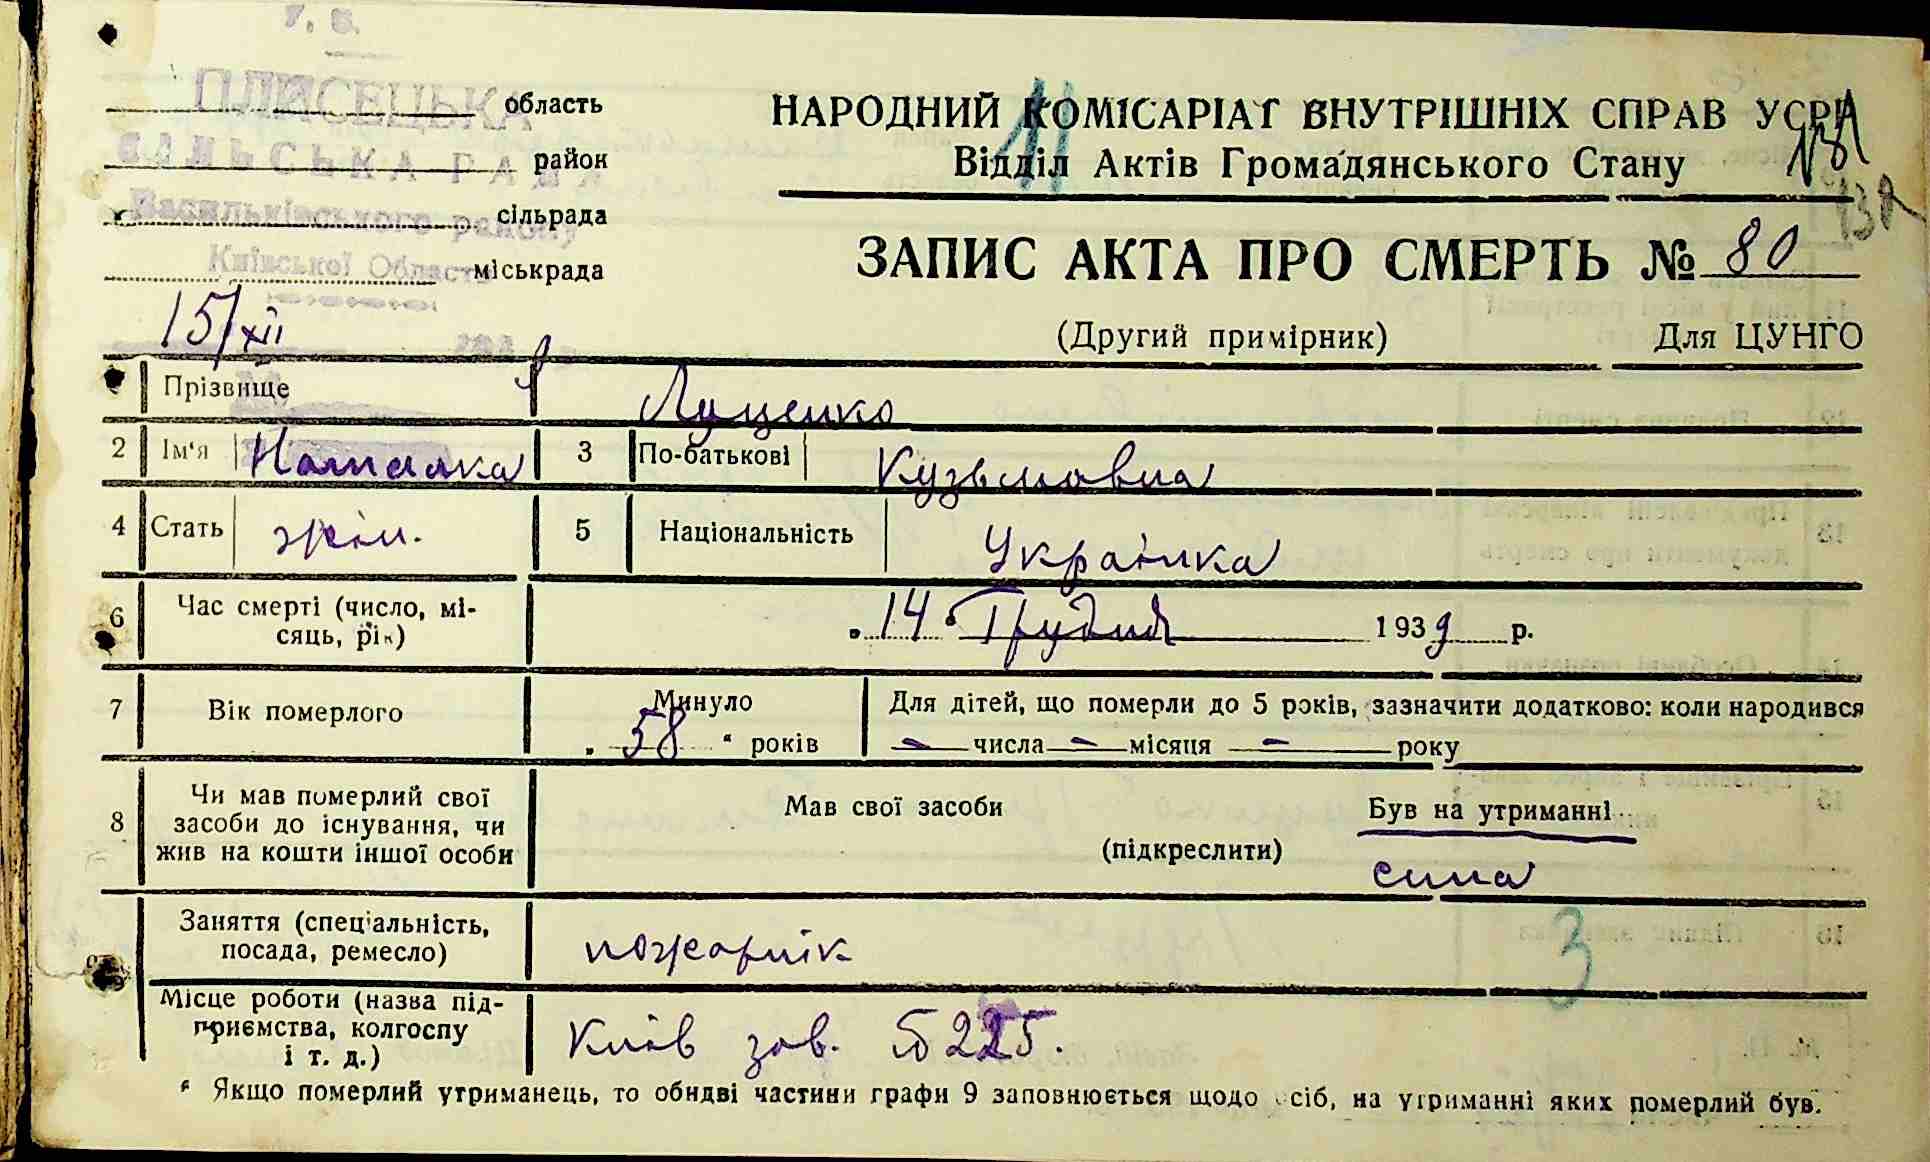 У. С.
ПЛИСЕЦЬКА область
СІЛЬСЬКА РАДА район
Васильківського району сільрада
Київської Області міськрада
15/XII
НАРОДНИЙ КОМІСАРІАТ ВНУТРІШНІХ СПРАВ УСРР
Відділ Актів Громадянського Стану
ЗАПИС АКТА ПРО СМЕРТЬ № 80
(Другий примірник) Для ЦУНГО
Прізвище Луценко
2 Ім'я Наталка 3 По-батькові Кузьмовна
4 Стать жін. 5 Національність Українка
6 Час смерті (число, мі-
сяць, рік) „14“ Грудня 1939 р.
7 Вік померлого Минуло „58“ років
Для дітей, що померли до 5 років, зазначити додатково: коли народився
— числа — місяця — року
8 Чи мав померлий свої
засоби до існування, чи
жив на кошти іншої особи
Мав свої засоби Був на утриманні
(підкреслити) сина
Заняття (спеціальність,
посада, ремесло) пожарнік
3
Місце роботи (назва під-
приємства, колгоспу
і т. д.) Київ зав. 225.
* Якщо померлий утриманець, то обидві частини графи 9 заповнюється щодо осіб, на утриманні яких померлий був.